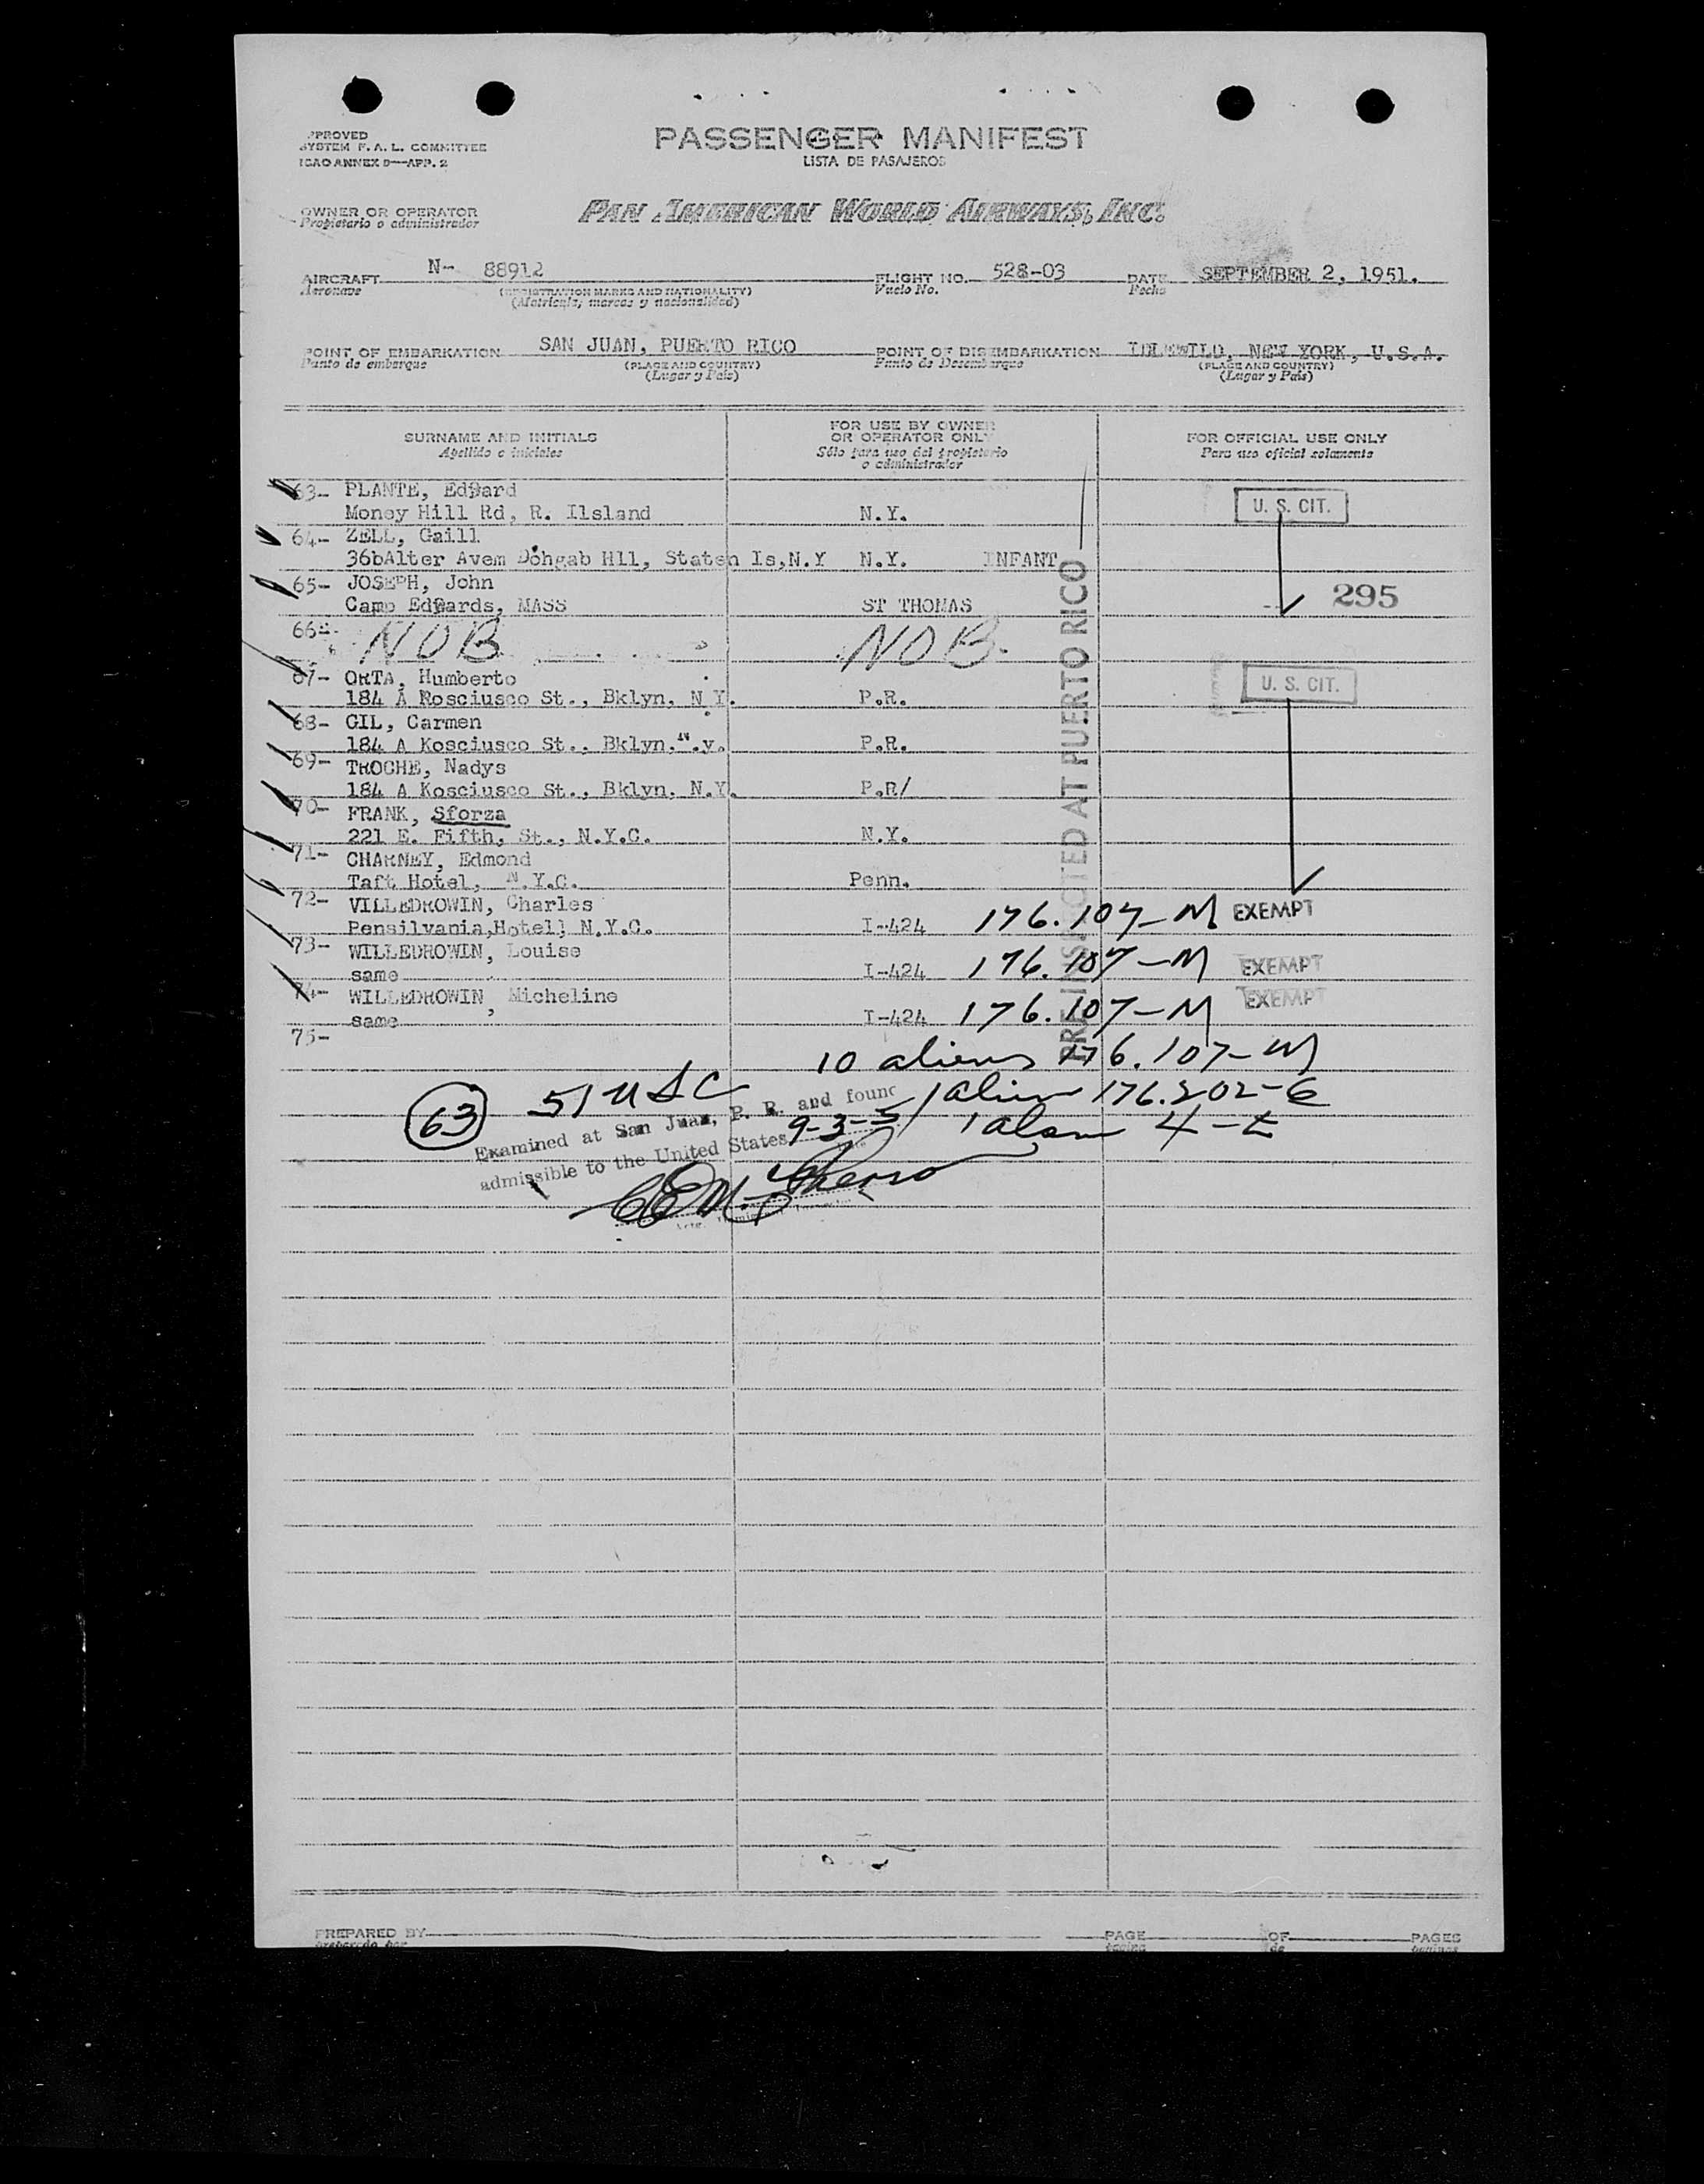 PPROVED
SYSTEM F. A. L. COMMITTEE
ICAO ANNEX 9—APP. 2
PASSENGER MANIFEST
LISTA DE PASAJEROS
OWNER OR OPERATOR
Propietario o administrador
PAN AMERICAN WORLD AIRWAYS, INC.
AIRCRAFT N- 88912 FLIGHT NO. 528-03 DATE SEPTEMBER 2, 1951.
Aeronave (REGISTRATION MARKS AND NATIONALITY) Vuelo No. Fecha
(Matricula, marcas y nacionalidad)
POINT OF EMBARKATION SAN JUAN, PUERTO RICO POINT OF DISEMBARKATION IDLEWILD, NEW YORK, U.S.A.
Punto de embarque (PLACE AND COUNTRY) Punto de Desembarque (PLACE AND COUNTRY)
(Lugar y País) (Lugar y País)
SURNAME AND INITIALS FOR USE BY OWNER OR OPERATOR ONLY FOR OFFICIAL USE ONLY
Apellido e iniciales Sólo para uso del propietario o administrador Para uso oficial solamente
63- PLANTE, Edward
Money Hill Rd, R. Ilsland N.Y. U. S. CIT.
64- ZELL, Gaill
36bAlter Avem Dohgab Hll, Staten Is,N.Y N.Y. INFANT
65- JOSEPH, John
Camp Edwards, MASS ST THOMAS 295
66- NOB NOB.
67- ORTA, Humberto
184 A Rosciusco St., Bklyn, N Y. P.R. U. S. CIT.
68- GIL, Carmen
184 A Kosciusco St., Bklyn.N.y. P.R.
69- TROCHE, Nadys
184 A Kosciusco St., Bklyn. N.Y. P.R/
70- FRANK, Sforza
221 E. Fifth, St., N.Y.C. N.Y.
71- CHARNEY, Edmond
Taft Hotel, N.Y.C. Penn.
72- VILLEDROWIN, Charles
Pensilvania,Hotel] N.Y.C. I-424 176.107-M EXEMPT
73- WILLEDROWIN, Louise
same I-424 176.107-M EXEMPT
74- WILLEDROWIN, Micheline
same I-424 176.107-M EXEMPT
75-
PRE-INSPECTED AT PUERTO RICO
10 aliens 176.107-M
63 51 USC 1 alien 176.202-6
Examined at San Juan, P. R. and found
admissible to the United States 9-3-51 1 alien 4-E
PREPARED BY PAGE OF PAGES
preparado por pagina de paginas